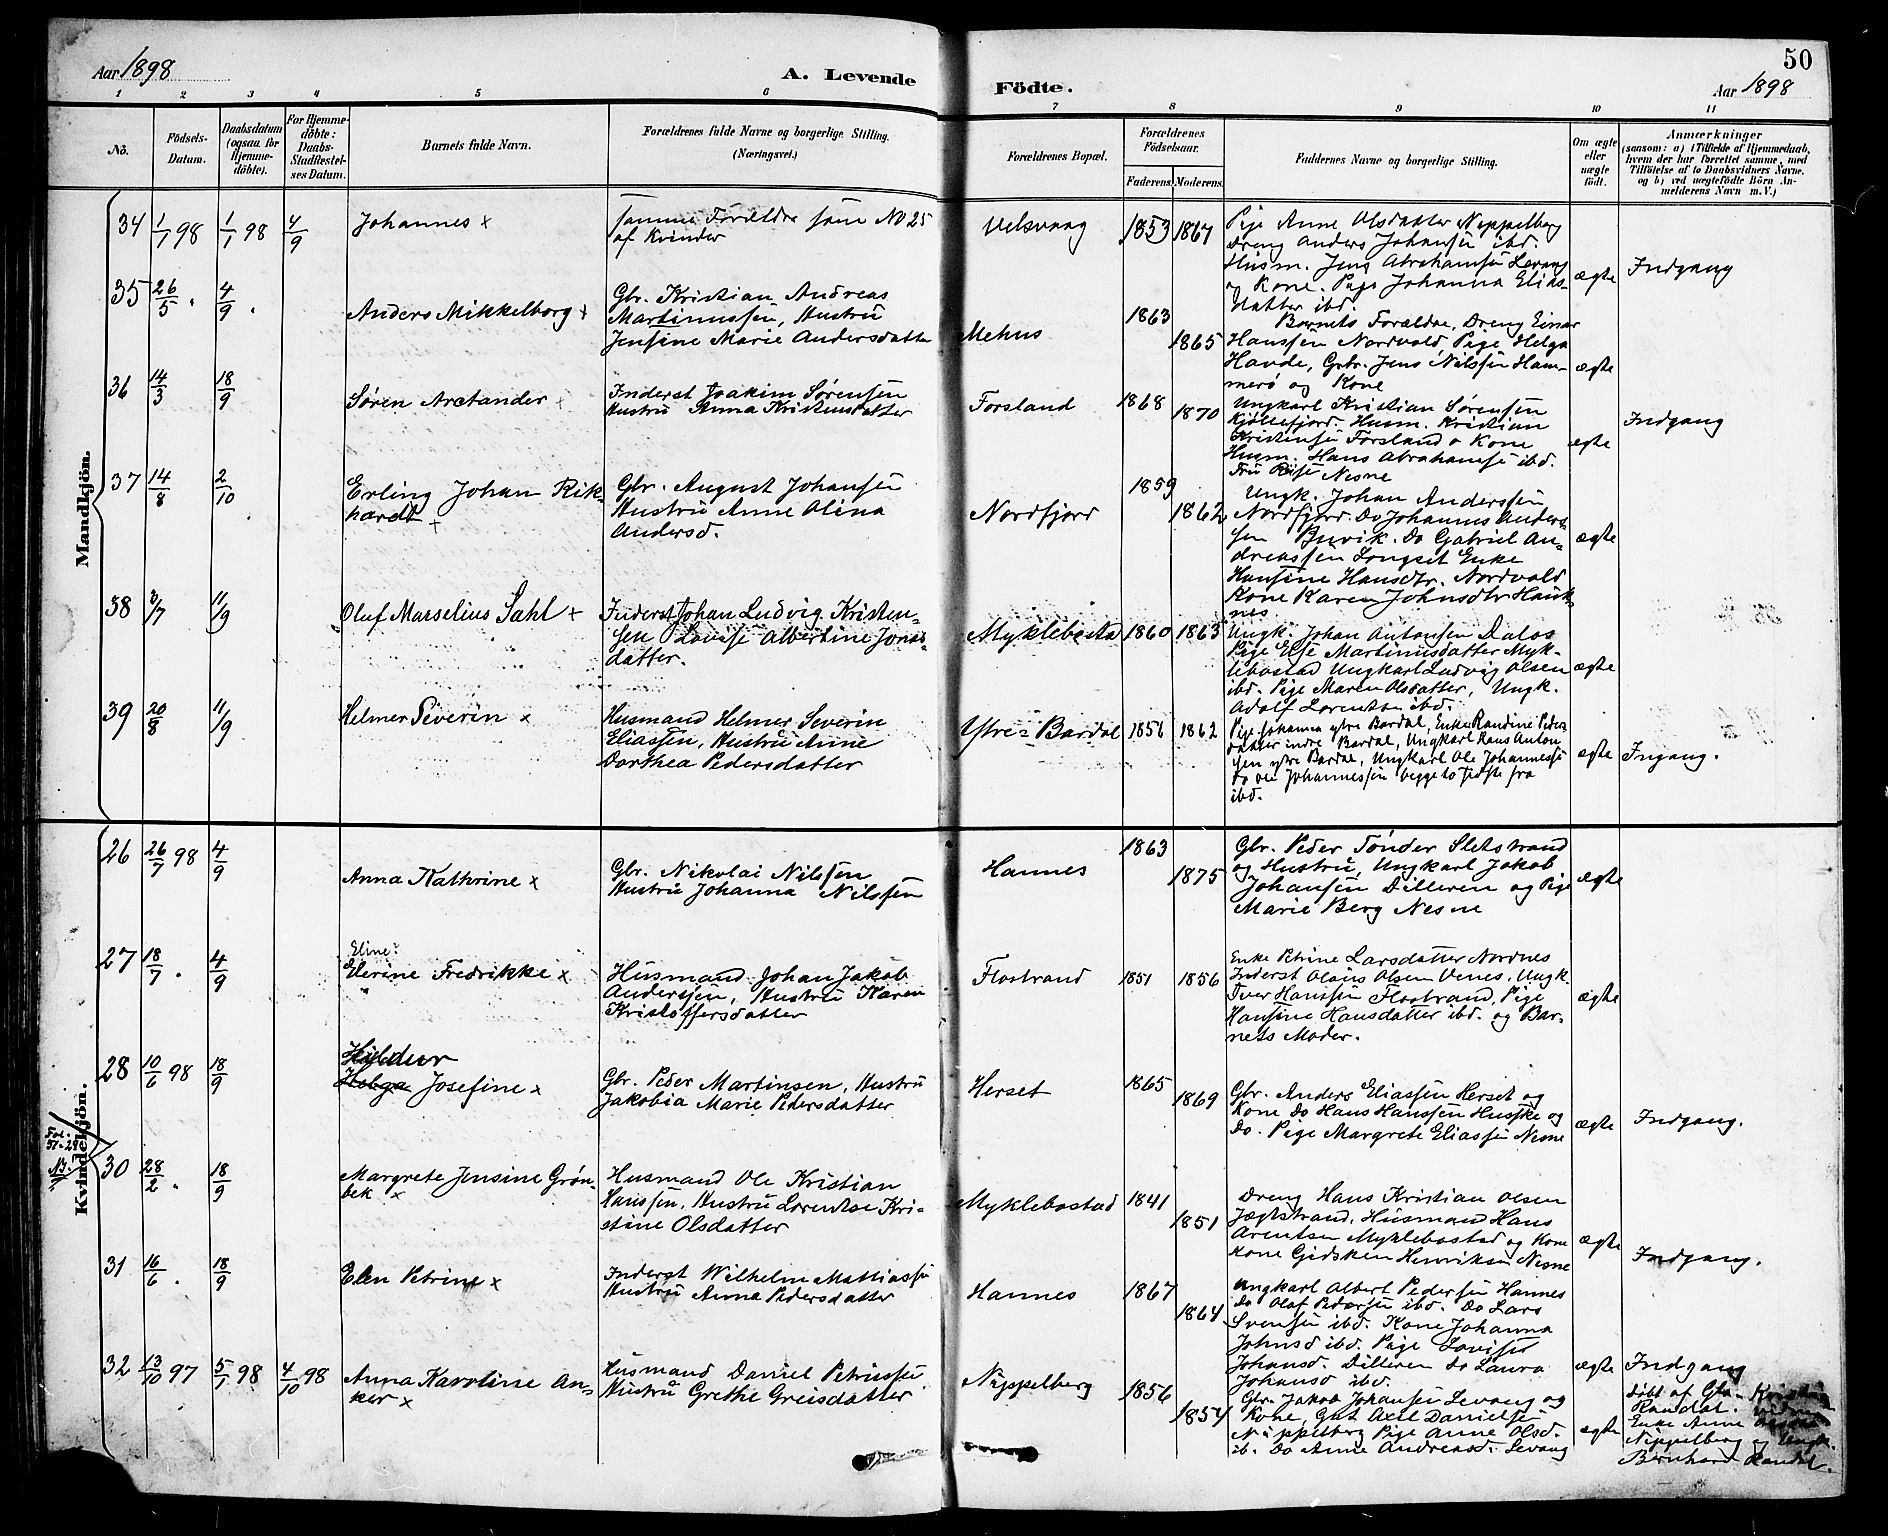 Aar 1898
A. Levende
Födte.
50
Aar 1898
1 2 3 4 5 6 7 8 9 10 11
No.
Födsels-Datum.
Daabsdatum (ogsaa for Hjemme-döbte).
For Hjemme-döbte: Daabs-Stadfæstel-ses Datum.
Barnets fulde Navn.
Forældrenes fulde Navne og borgerlige Stilling. (Næringsvei.)
Forældrenes Bopæl.
Forældrenes Födselsaar.
Faderens. Moderens.
Faddernes Navne og borgerlige Stilling.
Om ægte eller uægte födt.
Anmærkninger
(saasom: a) i Tilfælde af Hjemmedaab,
hvem der har forrettet samme, med
Tilföielse af to Daabsvidners Navne.
og b) ved uægtefödte Börn An-
melderens Navn m.V.)
Mandkjön.
34 1/7 98 1/7 98 4/9 Johannes x
Samme Forældre som No 25
af Kvinder
Velsvaag 1853 1867
Pige Anne Olsdatter Neppelberg
Dreng Anders Johansen ibd.
Husm. Jens Abrahamsen Levang
og Kone. Pige Johanna Elias-
datter ibd.
ægte Indgang
35 26/5 4/9 Anders Mikkelborg x
Gbr. Kristian Andreas
Martinussen, Hustru
Jensine Marie Andersdatter
Mehus 1863 1865
Barnets Forældre, Dreng Einar
Hanssen Nordvold Pige Helga
Havde, Grbr. Jens Nilssen Ham-
merö og Kone
ægte
36 14/3 18/9 Søren Arctander x
Inderst Joakim Sørensen
Hustru Anna Kristensdatter
Forsland 1868 1870
Ungkarl Kristian Sørensen
Kjøllefjord. Husm. Kristian
Kristensen Forsland o Kone
Husm. Hans Abrahamsen ibd.
Fru Nesne
ægte Indgang
37 14/8 2/10 Erling Johan Rik-
hardt x
Gbr. August Johansen
Hustru Anne Olina
Andersd.
Nordfjord 1859 1862
Ungk. Johan Anderssen
Nordfjord. Do Johannes Anders-
sen Buvik. Do Gabriel An-
dreassen Longset Enke
Hansine Hansdtr. Nordvold
Kone Karen Johnsdtr Hauk-
nes
ægte
38 3/7 11/9 Oluf Marselius Sahl x
Inderst Johan Ludvig Kristen-
sen Lovise Albertine Jonas-
datter.
Myklebosta 1860 1863
Ungk. Johan Antonsen Dalos
Pige Else Martinusdatter Myk-
lebostad Ungkarl Ludvig Olsen
ibd. Pige Maren Olsdatter, Ungk.
Adolf Lorentsen ibd.
ægte
39 20/8 11/9 Helmer Severin x
Husmand Helmer Severin
Eliassen, Hustru Anne
Dorthea Pedersdatter
Ytre-Bardal 1856 1862
Pige Johanna ytre Bardal, Enke Randine Peders-
datter indre Bardal, Ungkarl Hans Anton-
sen ytre Bardal, Ungkarl Ole Johannessen
Do Ole Johannessen begge to sidste fra
ibd.
ægte Ingang.
Kvindekjön.
26 26/7 98 4/9 Anna Kathrine x
Gbr. Nikolai Nilssen
Hustru Johanna Nilssen
Hannes 1863 1875
Gbr. Peder Tønder Sletstrand
og Hustru, Ungkarl Jakob
Johansen Dilleren og Pige
Marie Berg Nesne
ægte
27 18/7 4/9 Eline?
Elerine Fredrikke x
Husmand Johan Jakob
Anderssen, Hustru Karen
Kristoffersdatter
Flostrand 1851 1856
Enke Petrine Larsdatter Nordnes
Inderst Olaus Olsen Venes, Ungk.
Iver Hanssen Flostrand, Pige
Hansine Hansdatter ibd. og Bar-
nets Moder.
ægte
28 10/6 98 18/9 Hildur
Helga Josefine x
Gbr. Peder Martinsen, Hustru
Jakobia Marie Pedersdatter
Herset 1865 1869
Gbr. Anders Eliassen Herset og
Kone Do Hans Hanssen Husske og
Do. Pige Margrete Eliassen Nesne
ægte Indgang.
Fol. 51-29
NB.
30 28/2 18/9 Margrete Jensine Grøn-
bek x
Husmand Ole Kristian
Hanssen, Hustru Lorentse Kri-
stine Olsdatter
Myklebostad 1841 1851
Dreng Hans Kristian Olsen
Jægtstrand, Husmand Hans
Arentsen Myklebostad og Kone
Kone Gidsken Henriksen Nesne
ægte Indgang.
31 16/6 18/9 Elen Petrine x
Inderst Wilhelm Mattiassen
Hustru Anna Pedersdatter
Hannes 1867 1864
Ungkarl Albert Pedersen Hannes
Do Olaf Pedersen ibd. Do Lars
Svensen ibd. Kone Johanna
Johnsd ibd. Pige Lovise
Johansd. Dilleren Do Laura
Johansd ibd.
ægte Indgang
32 13/10 97 5/7 98 4/10 98 Anna Karoline An-
ker x
Husmand Daniel Petrussen
Hustru Grethe Greisdatter
Nippelberg 1856 1857
Gbr. Jakob Johansen Levang og
Kone, Gut Axel Danielsen
Nippelberg Pige Anne Olsd.
ib. Do Anne Andreasd. Levang
ægte
Döbt af Gbr. Kristian
Randal.
Enke Anne
Nippelberg og Ungk.
Bernhard Randal.